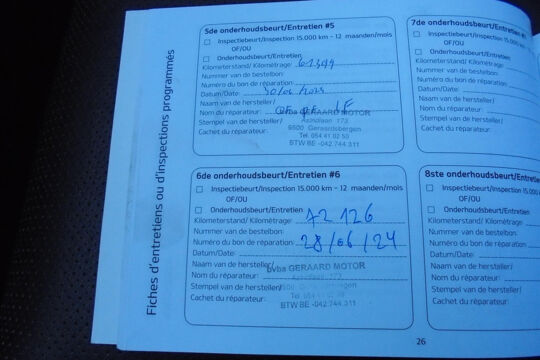 Fiches d'entretiens ou d'inspections programmés
5de onderhoudsbeurt/Entretien #5
Inspectiebeurt/Inspection 15.000 km - 12 maanden/mois
OF/OU
Onderhoudsbeurt/Entretien
Kilometerstand/ Kilométrage: 61349
Nummer van de bestelbon:
Numéro du bon de réparation:
Datum/Date:
Naam van de hersteller/
Nom du réparateur:
bvba GERAARD MOTOR
Stempel van de hersteller/
Cachet du réparateur:
Astridlaan 173
9500 Geraardsbergen
Tel. 054 41 82 53
BTW BE -042.744.311
6de onderhoudsbeurt/Entretien #6
Inspectiebeurt/Inspection 15.000 km - 12 maanden/mois
OF/OU
Onderhoudsbeurt/Entretien
Kilometerstand/ Kilométrage: 72 126
Nummer van de bestelbon:
Numéro du bon de réparation: 28/06/24
Datum/Date:
Naam van de hersteller/
Nom du réparateur:
bvba GERAARD MOTOR
Stempel van de hersteller/
Cachet du réparateur:
BTW BE -042.744.311
7de onderhoudsbeurt/Entretien
Inspectiebeurt/Inspection 15.000
OF/OU
Onderhoudsbeurt/Entretien
Kilometerstand/ Kilométrage:
Nummer van de bestelbon:
Numéro du bon de réparation:
Datum/Date:
Naam van de hersteller/
Nom du réparateur:
Stempel van de hersteller/
Cachet du réparateur:
8ste onderhoudsbeurt/Entretien
Inspectiebeurt/Inspection 15.000
OF/OU
Onderhoudsbeurt/Entretien
Kilometerstand/ Kilométrage:
Nummer van de bestelbon:
Numéro du bon de réparation:
Datum/Date:
Naam van de hersteller/
Nom du réparateur:
Stempel van de hersteller/
Cachet du réparateur:
26